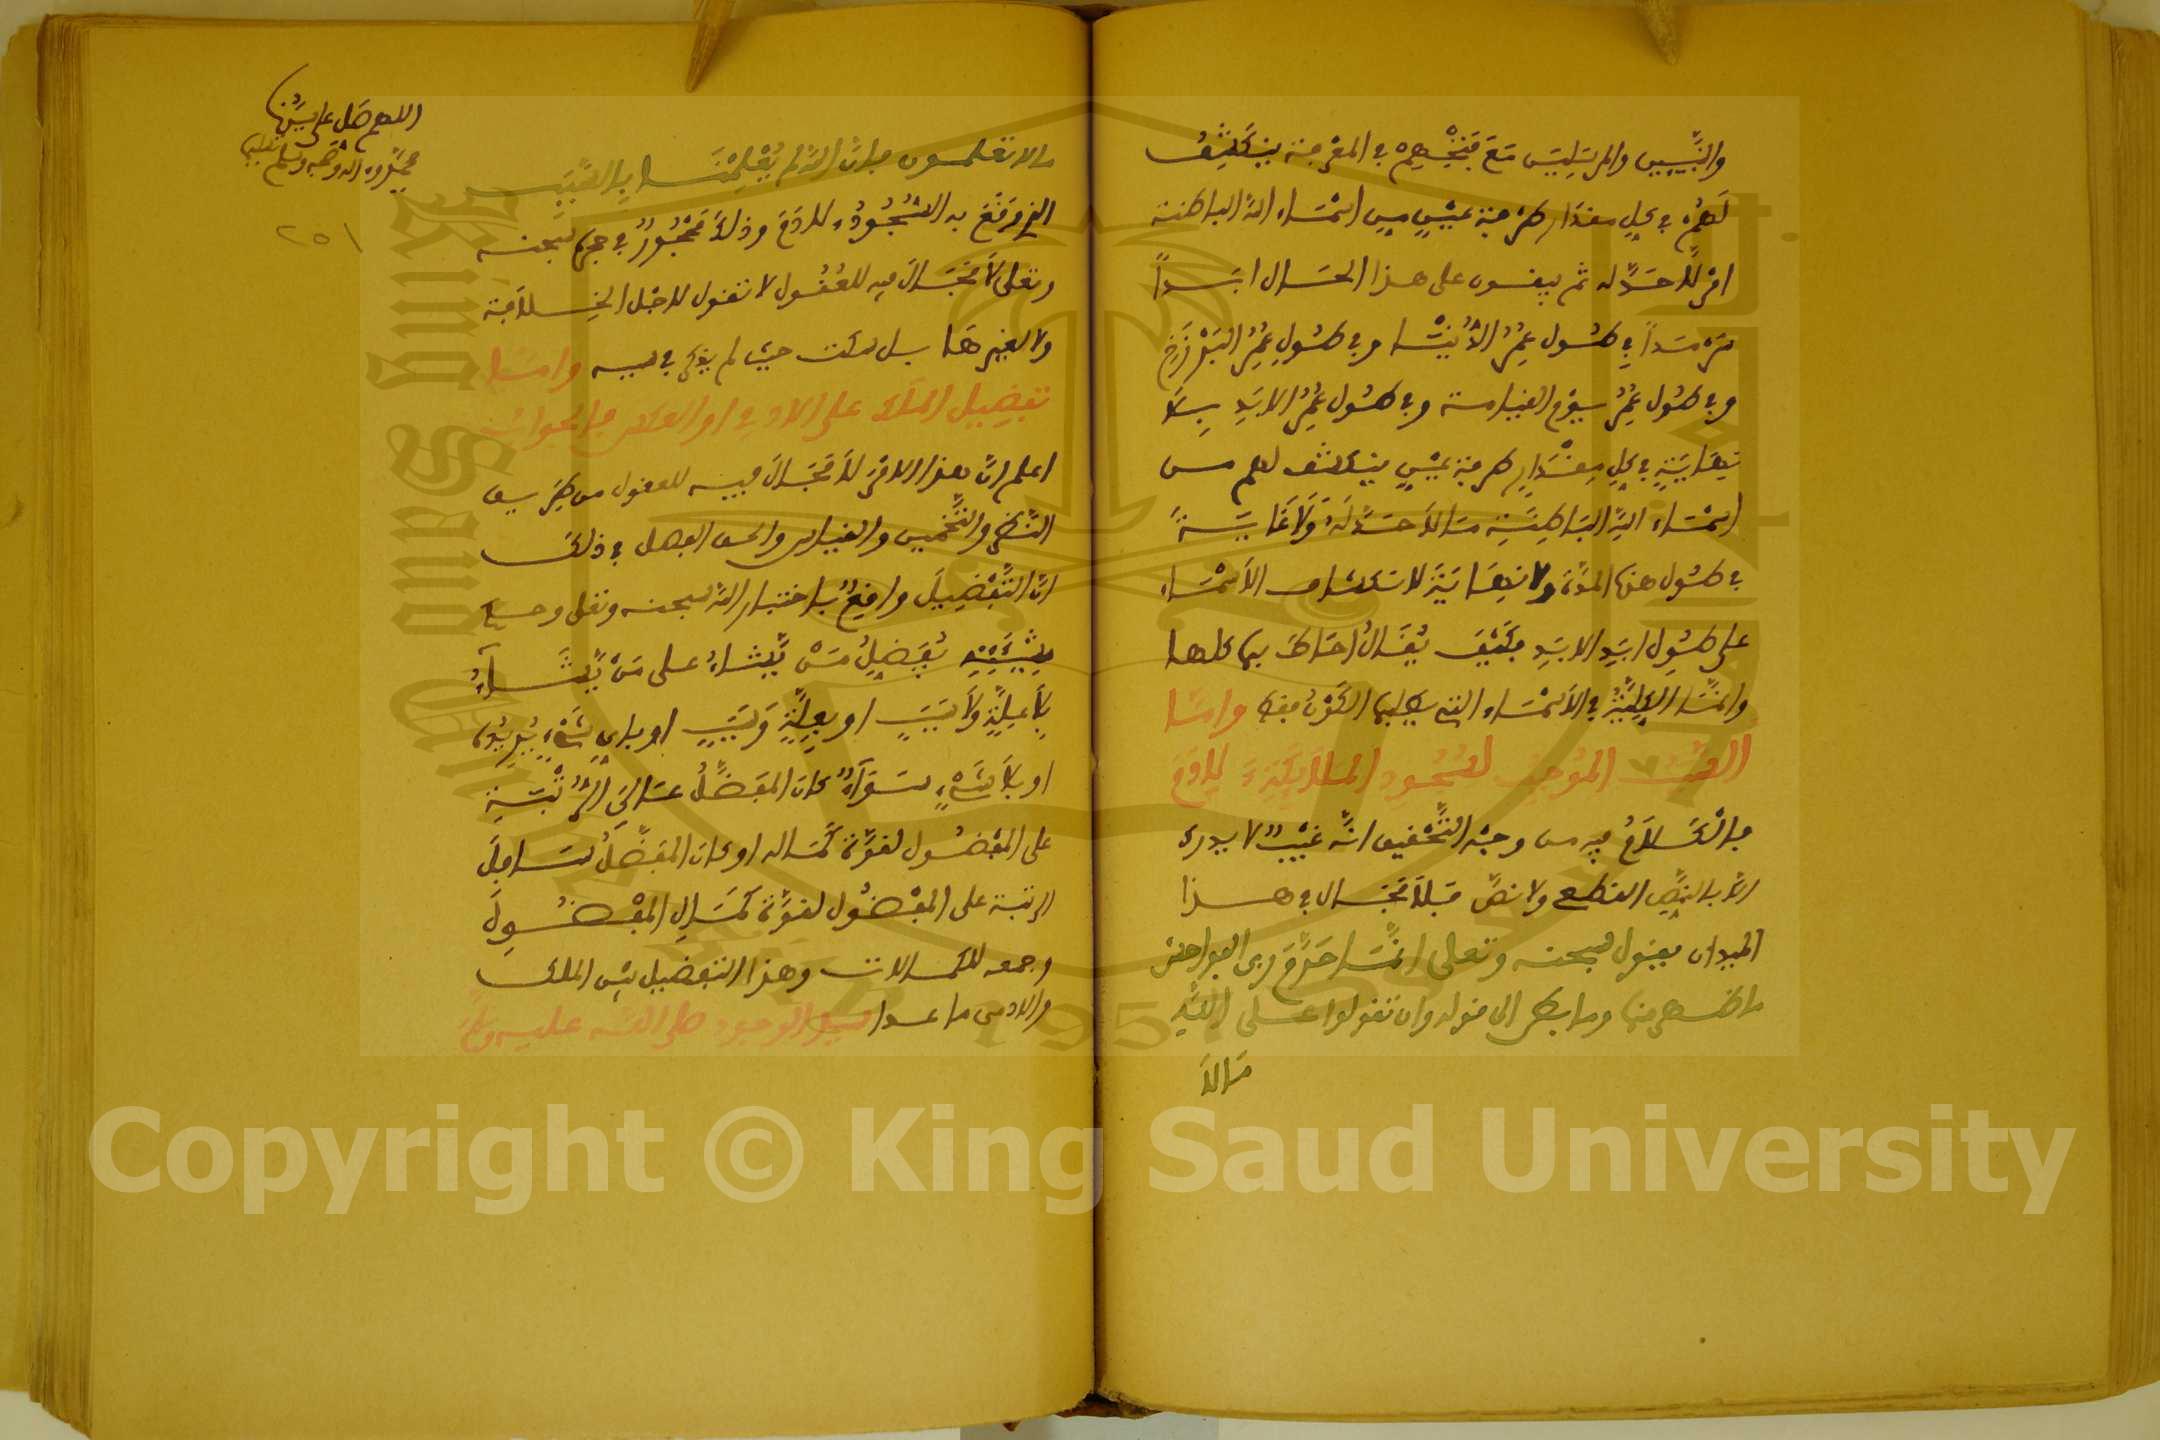 والنبيين والمرسلين مَعَ فتحهم في المعرفة ينكشف
لهم في كل مقدار طرفة عين من اسماء الله الباطنة
امر لا حدّ له ثم يبقون على هذا الحال ابداً
سرمداً في طول عمُر الدُّنيْا وفي طول عمُر البَرْزَخ
وفي طول عمُر يوم القيامة وفي طول عمُر الابد بِلاَ
نهاية في كل مقدار طرفة عين ينكشف لهم من
اسماء الله الباطنة مَا لاَ حَدَّ لَهُ وَلاَ غَايَةَ
في طول هذه المدّة ولا نهاية لانكشاف الأسْمَاء
على طول ابد الابد فكيف يُقَالُ احَاطَ بها كلها
وانما الكلية في الأسْمَاء التي يطلبها الكَوْن فقط وامّا
السبب الموجب لسجود الملائكة لآدم
فالكلام فيه من وجه التَّحْقيق انّه غَيْبٌ لا يدرك
الا بالنص القطعي ولا نصّ فَلاَ مَجَال في هذا
الميدان يقول سبحنه وتعلى انما حرّم ربي الفواحش
ما ظهر منها وما بطن الى قوله وان تقولوا على الله
مَا لاَ
اللهم صَل على سَيّدنا
محمّد واله وصحبه وسلم تسليما
٢٥١
ما لا تعلمون فإن الله لم يُعْلِمْنَا بالسَّبَب
الذي وقع به السُّجُودُ لآدم وذلك محجُورٌ في حجره سبحنه
وتعلى لاَ مَجَالَ فيه للعُقُول لا نقول لاجل الخلافة
ولا لغيرهَا بل نسكت حيث لم يذكر فيه وامَّا
تفضيل الملك على الآدمي او العكس فالجواب
اعلم انّ هذا الامْرَ لاَ مَجَالَ فيه للعقول من طريق
النَّظر والتَّخمين والقياس والحق الفصل في ذلك
انّ التَّفْضِيلَ واقِعٌ باختيار الله سبحنه وتعلى وحكم
مشيئته يُفَضِلُ مَنْ يَّشَاءُ على مَنْ يَّشَآءُ
بِلاَ علَّةٍ وَلاَ سَبَبٍ او بِعِلَّةٍ وَسَبَبٍ او باي شَيْءٍ يُرِيدُهُ
او بِلاَ شَيْءٍ سَوَآءٌ كان المفَضَّلُ عَالي الرُّتْبَةِ
على المفْضُول لقوَّة كَمَاله او كان المفَضَّلُ سَافِل
الرتبة على المفْضُول لقوَّة كَمَالِ المفْضُولِ
وجمعه للكمالات وهذا التفضيل بيْن الملك
والآدمي ما عدا سيد الوجود صلى الله عليه وسلم